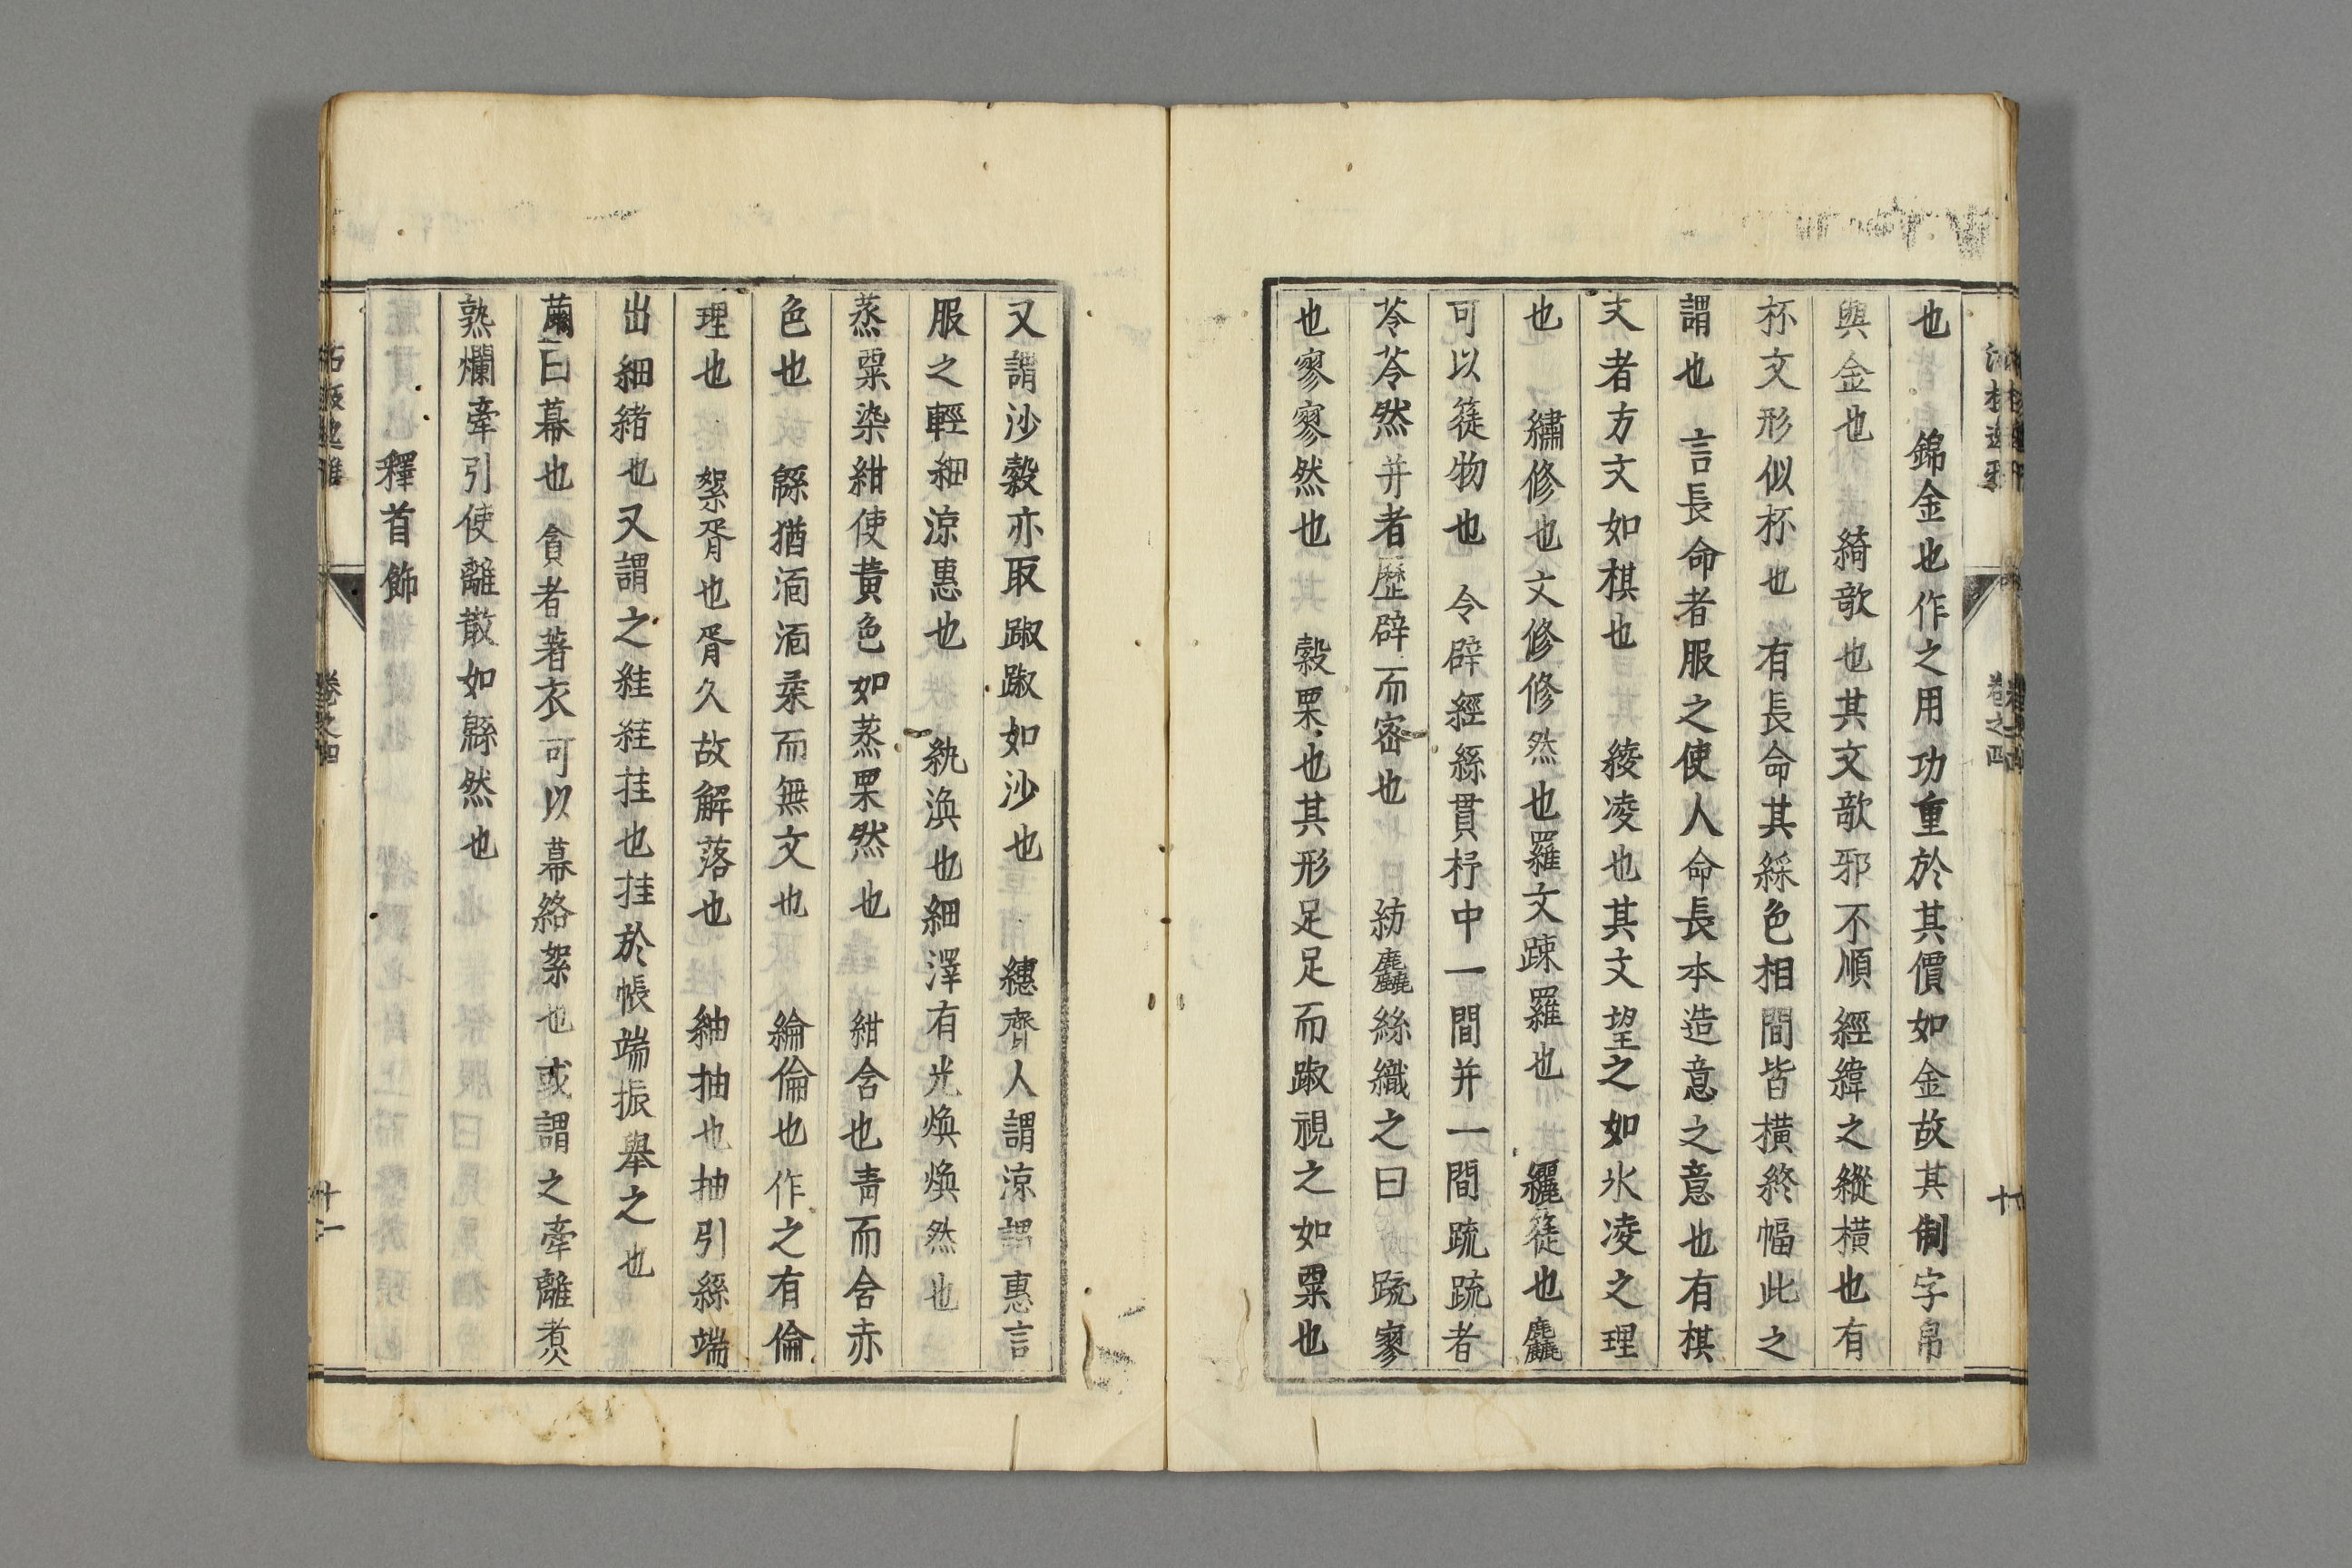 也　錦金也作之用功重於其價如金故其制字帛
與金也　綺欹也其文欹邪不順經緯之縱橫也有
杯文形似杯也　有長命其綵色相間皆橫終幅此之
謂也　言長命者服之使人命長本造意之意也有棋
文者方文如棋也　綾凌也其文望之如氷凌之理
也　繡修也文修修然也羅文踈羅也　纚簁也麤
可以簁物也　令辟經絲貫杼中一間并一間疏疏者
苓苓然并者歷辟而密也　紡麤絲織之曰　䟽寥
也寥寥然也　縠粟也其形足足而踧視之如粟也
又謂沙縠亦取踧踧如沙也　繐齊人謂涼謂惠言
服之輕細涼惠也　紈渙也細澤有光煥煥然也
蒸粟染紺使黃色如蒸粟然也　紺含也靑而含赤
色也　緜猶湎湎柔而無文也　綸倫也作之有倫
理也　絮胥也胥久故解落也　紬抽也抽引絲端
出細緒也又謂之絓絓挂也挂於帳端振舉之也
繭曰幕也　貧者著衣可以幕絡絮也或謂之牽離煑
熟爛牽引使離散如緜然也
釋首飾
卷之四
十一